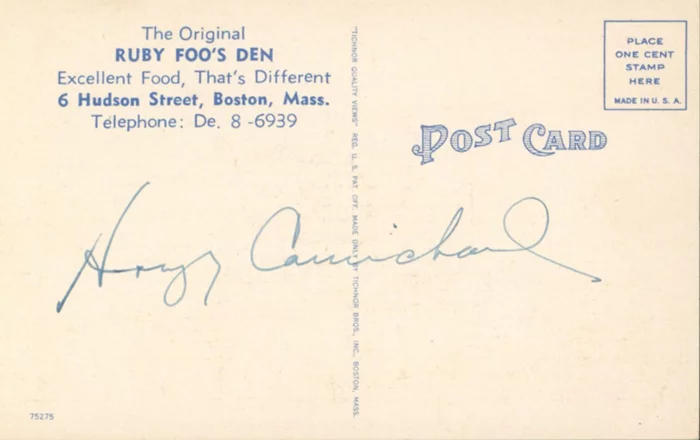 The Original
RUBY FOO'S DEN
Excellent Food, That's Different
6 Hudson Street, Boston, Mass.
Telephone: De. 8 -6939
"TICHNOR QUALITY VIEWS" REG. U. S. PAT. OFF. MADE ONLY BY TICHNOR BROS., INC., BOSTON, MASS.
PLACE
ONE CENT
STAMP
HERE
MADE IN U. S. A.
POST CARD
Hoagy Carmichael
75275